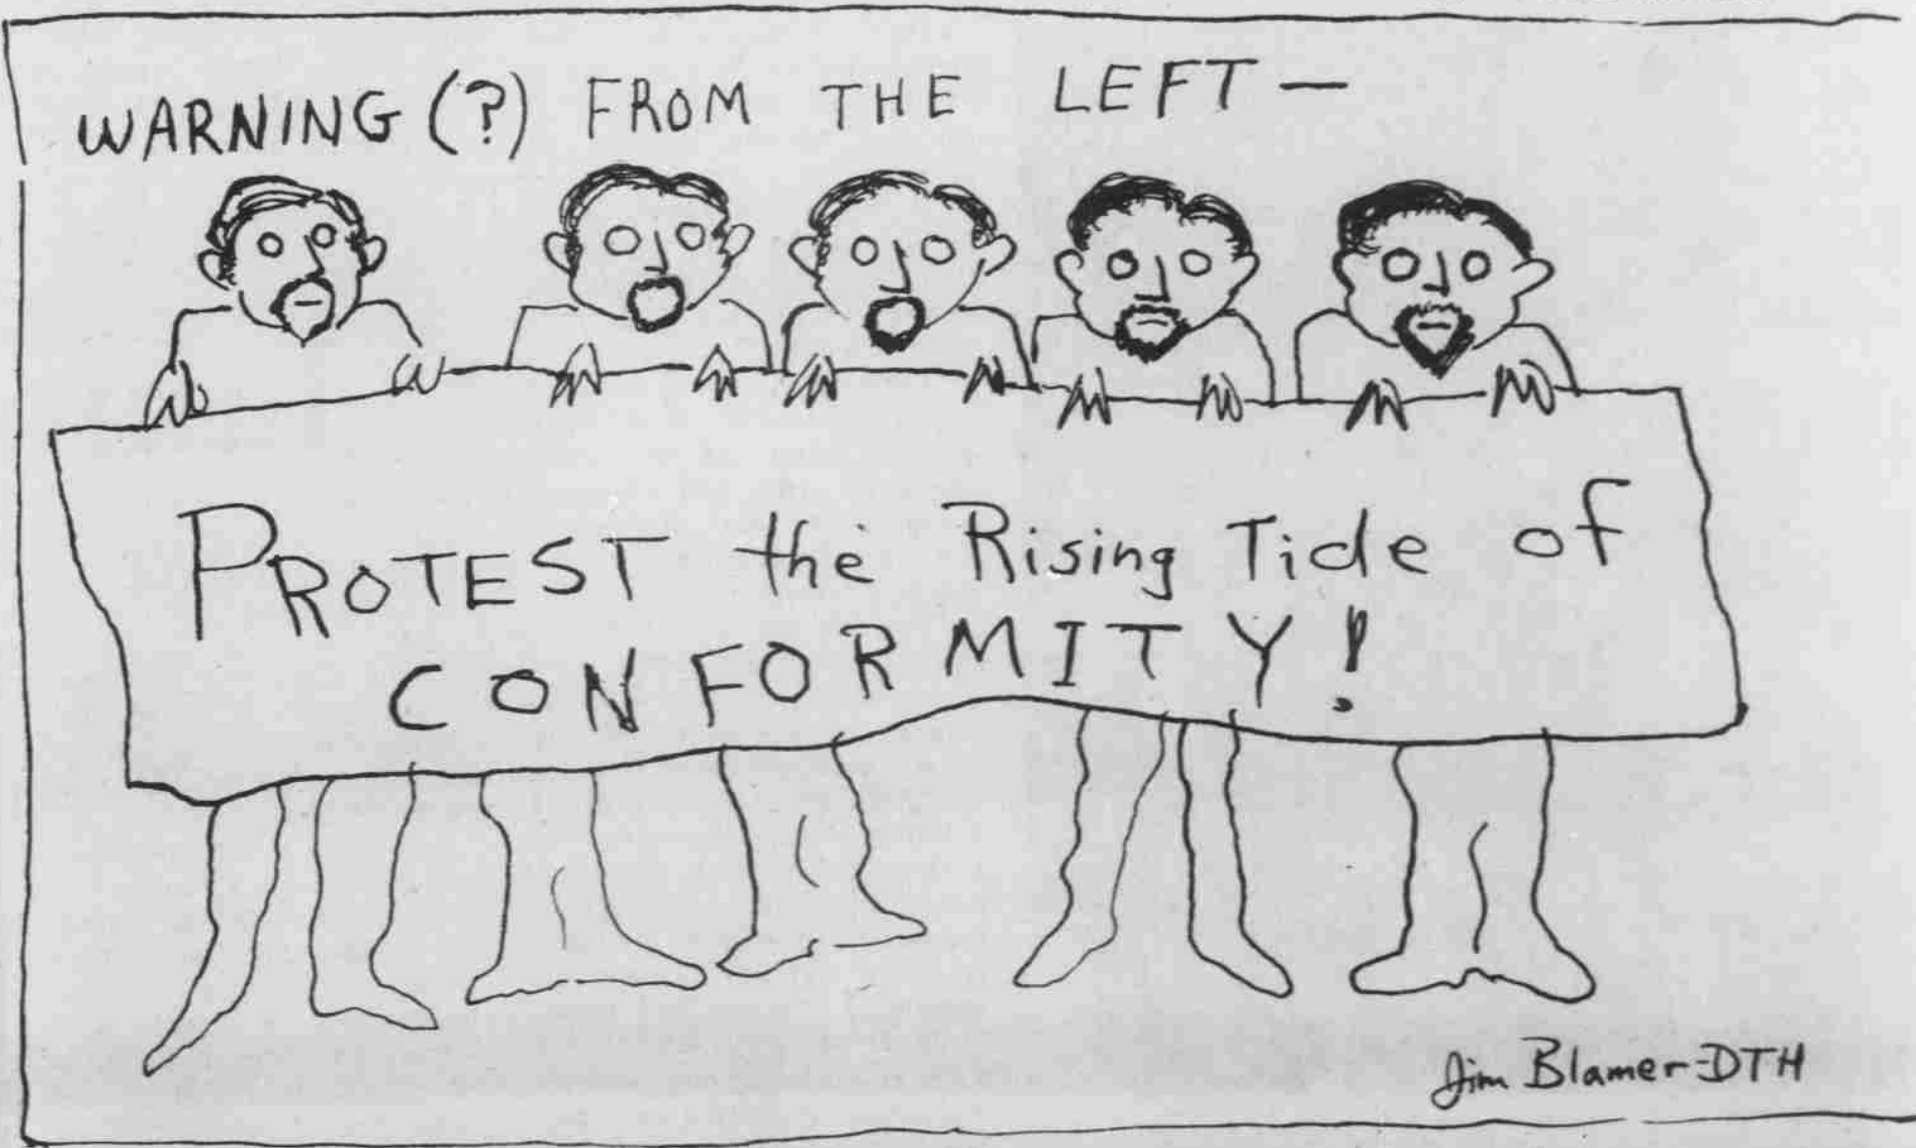 WARNING (?) FROM THE LEFT —
PROTEST the Rising Tide of
CONFORMITY!
Jim Blamer-DTH